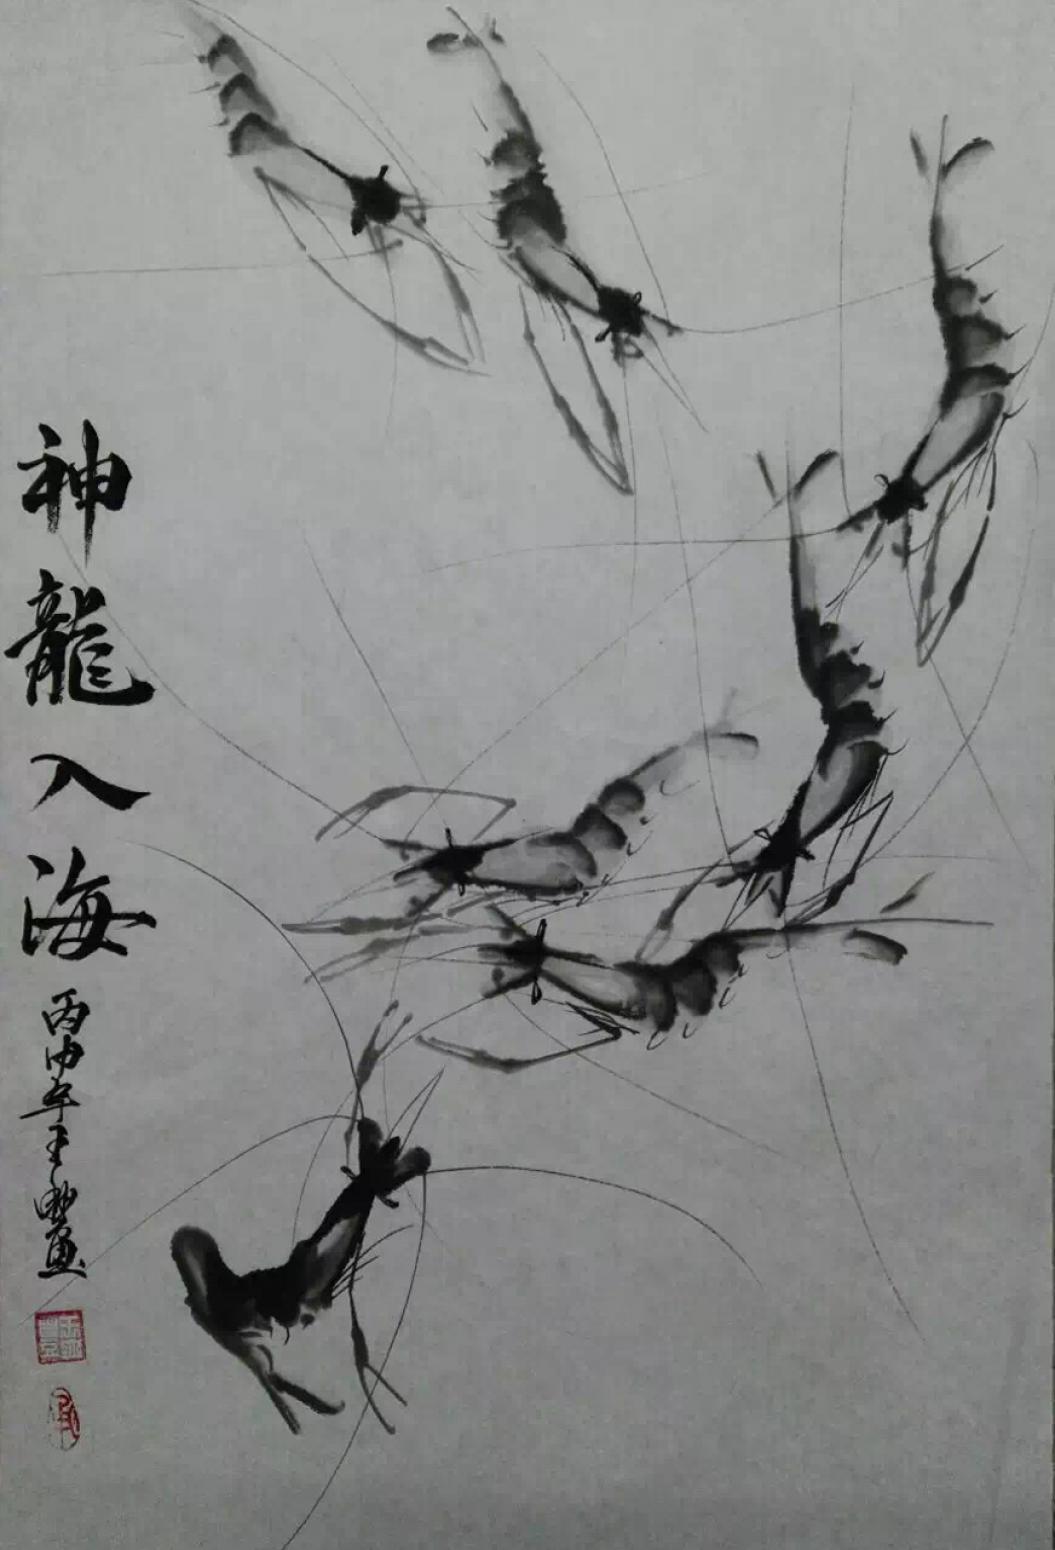 神龍入海
丙申年王